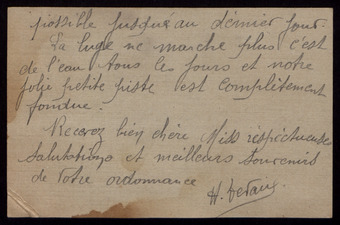 possible jusqu'au dernier jour.
La luge ne marche plus c'est
de l'eau tous les jours et notre
jolie petite piste est complètement
fondue.
Recevez bien chère Miss respectueuses
salutations et meilleurs souvenirs
de votre ordonnance
H.